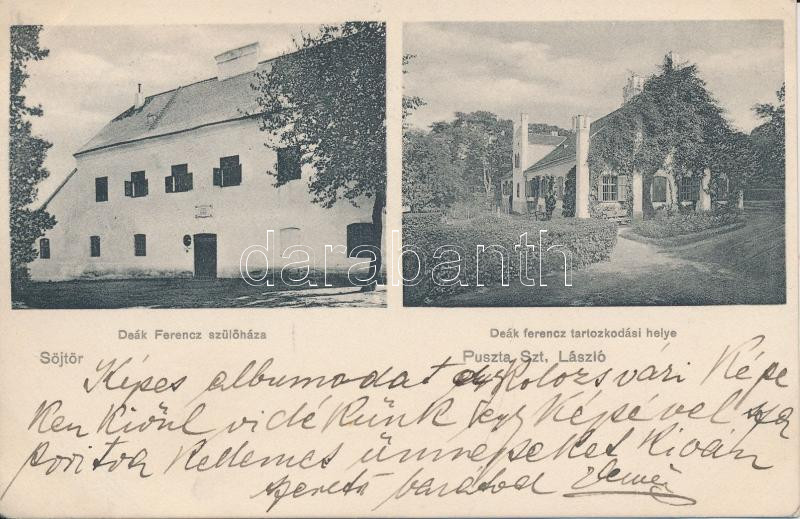 darabanth
Deák Ferencz szülőháza
Deák ferencz tartozkodási helye
Söjtör
Puszta Szt, László
Képes albumodat a Kolozsvári Képe
ken kivül vidékünk egy képével sza
poritva Kellemes ünnepeket Kiván
szerető barátod